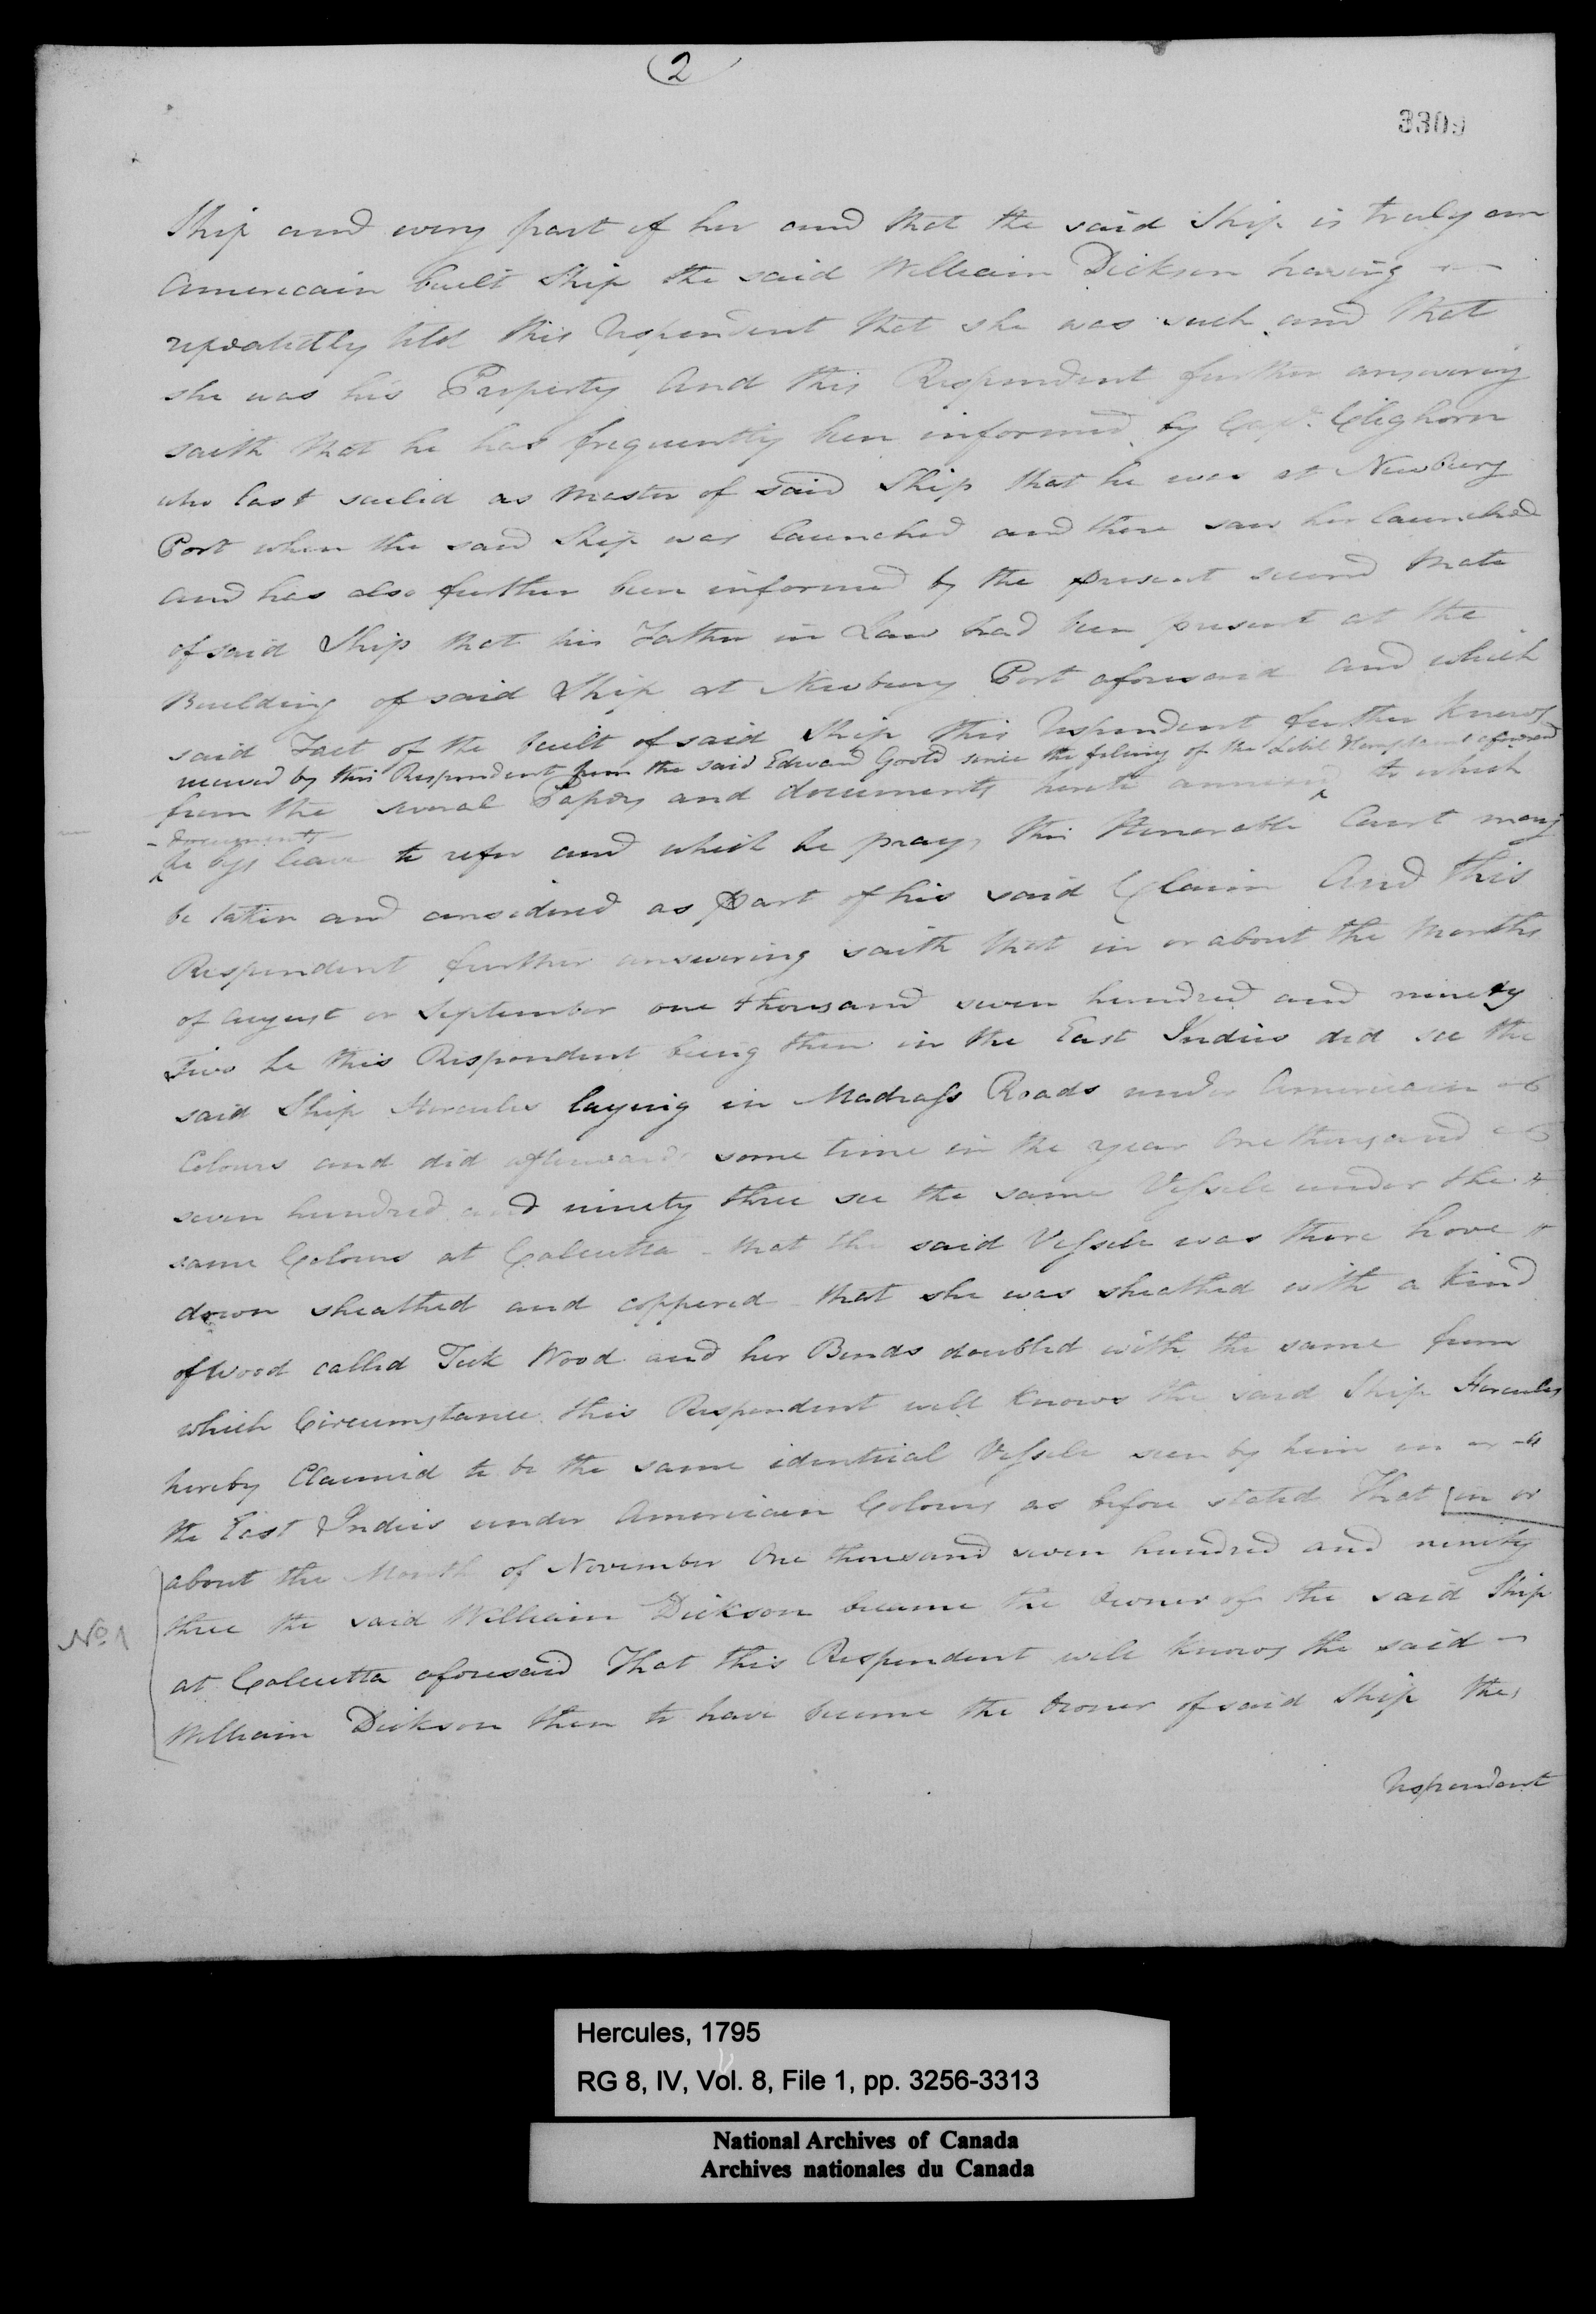 2
3309
Ship and every part of her and that the said Ship is truly an
Americain built Ship the said William Dickson having
repeatedly told this respondent that she was such and that
she was his Property And this Respondent further answering
saith that he has frequently been informed by Capt. Cleghorn
who last sailed as Master of said Ship that he was at Newbury
Port when the said Ship was launched and there saw her launched
and has also further been informed by the present second Mate
of said Ship that his Father in Law had been present at the
Building of said Ship at Newbury Port aforesaid and which
said Fact of the built of said Ship this respondent further knows
received by this Respondent from the said Edward Goold since the filing of the Libel & Complaint aforesaid
from the several Papers and documents hereto annexed to which
documents
he begs leave to refer and which he prays this Honorable Court may
be taken and considered as part of his said Claim And this
Respondent further answering saith that in or about the Months
of August or September one thousand seven hundred and ninety
Two he this Respondent being then in the East Indies did see the
said Ship Hercules laying in Madrass Roads under Americain
Colours and did afterwards some time in the year One thousand
seven hundred and ninety three see the same Vessele under the
same Colours at Calcutta - that the said Vessele was there hove
down sheathed and coppered - that she was sheathed with a kind
of Wood called Teek Wood and her Bends doubled with the same from
which Circumstance this Respondent well knows the said Ship Hercules
hereby Claimed to be the same identical Vessele seen by him in
the East Indies under Americain Colours as before stated That in or
about the Month of November One thousand seven hundred and ninety
three the said William Dickson became the Owner of the said Ship
No 1
at Calcutta aforesaid That this Respondent well knows the said
William Dickson then to have become the Owner of said Ship the
respondent
Hercules, 1795
RG 8, IV, Vol. 8, File 1, pp. 3256-3313
National Archives of Canada
Archives nationales du Canada